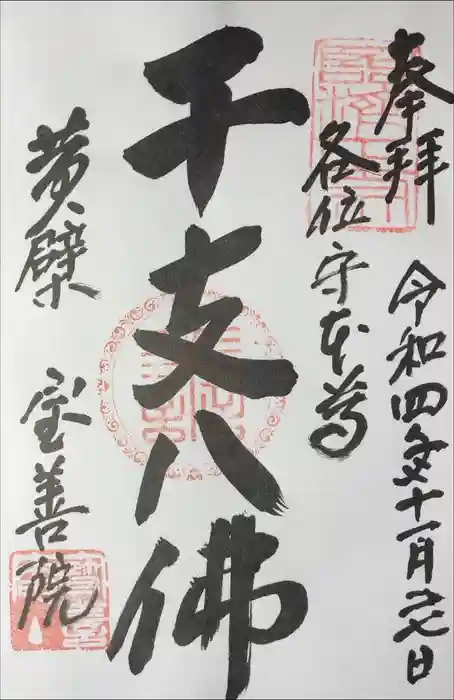 奉拝
令和四年十一月廿七日
各位守本尊
干支八佛
黄檗 宝善院